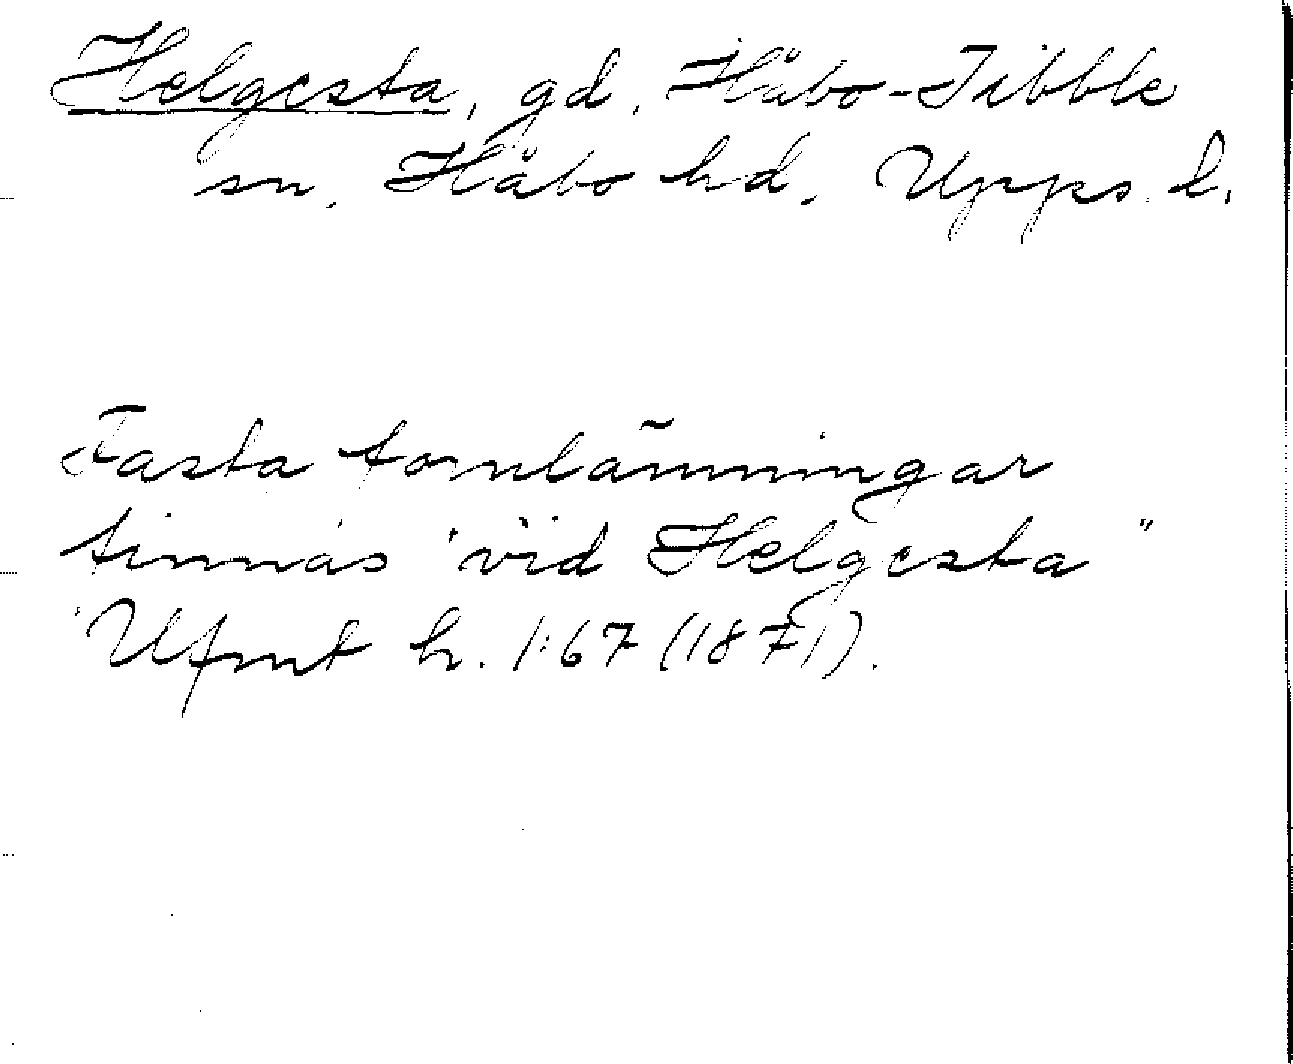 Helgesta, gd, Håbo-Tibble
sn, Håbo hd, Upps. l.
Fasta fornlämningar
finnas "vid Helgesta"
Ufmt h. 1:67 (1871).